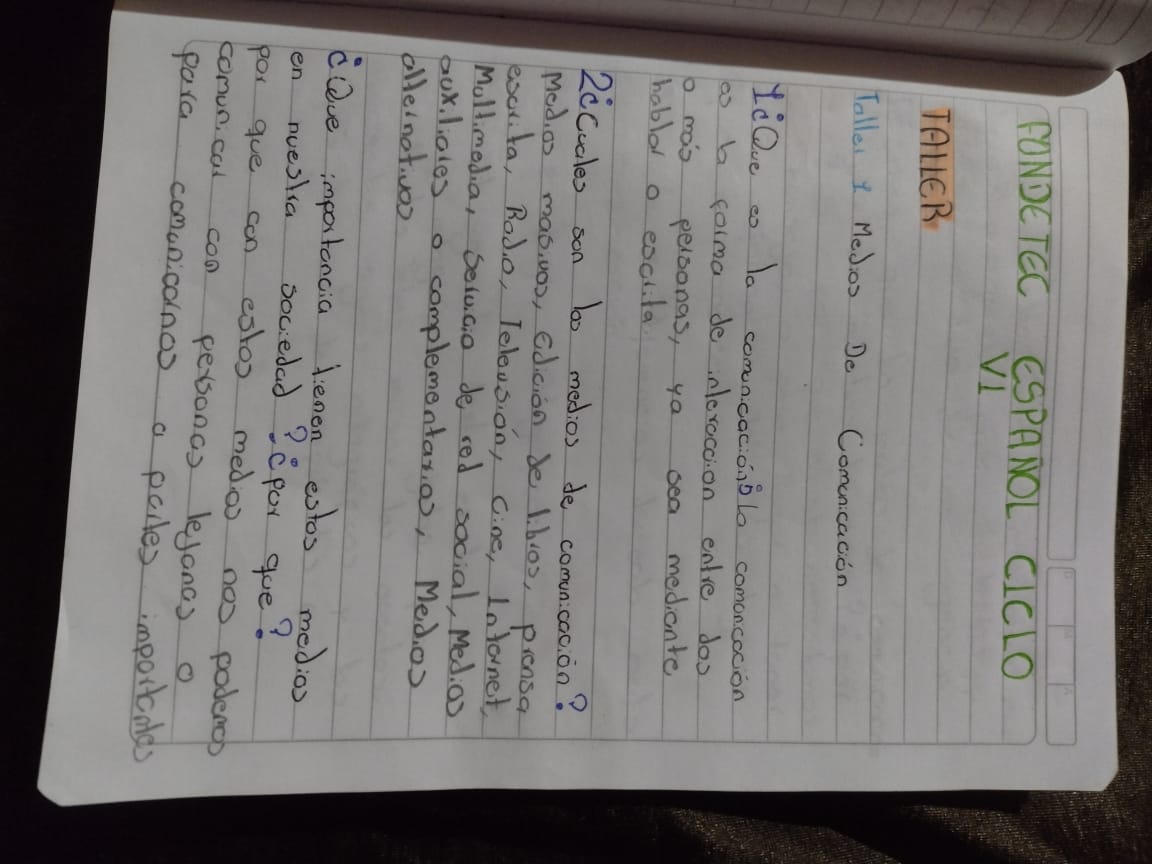 FONDETEC ESPAÑOL CICLO
VI
TALLER
Taller 1 Medios De Comunicación
1¿Que es la comunicación? la comonicación
es la forma de interaccion entre dos
o más personas, ya sea mediante
hablar o escrita
2¿Cuales son los medios de comunicación?
Medios masivos, Edición de libros, prensa
escrita, Radio, Televisión, Cine, Internet,
Multimedia, Servicio de red social, Medios
auxiliares o complementarios, Medios
alternativos
¿Que importancia tienen estos medios
en nuestra sociedad? ¿por que?
por que con estos medios nos podemos
comunicar con personas lejanas o
para comunicarnos a partes importantes